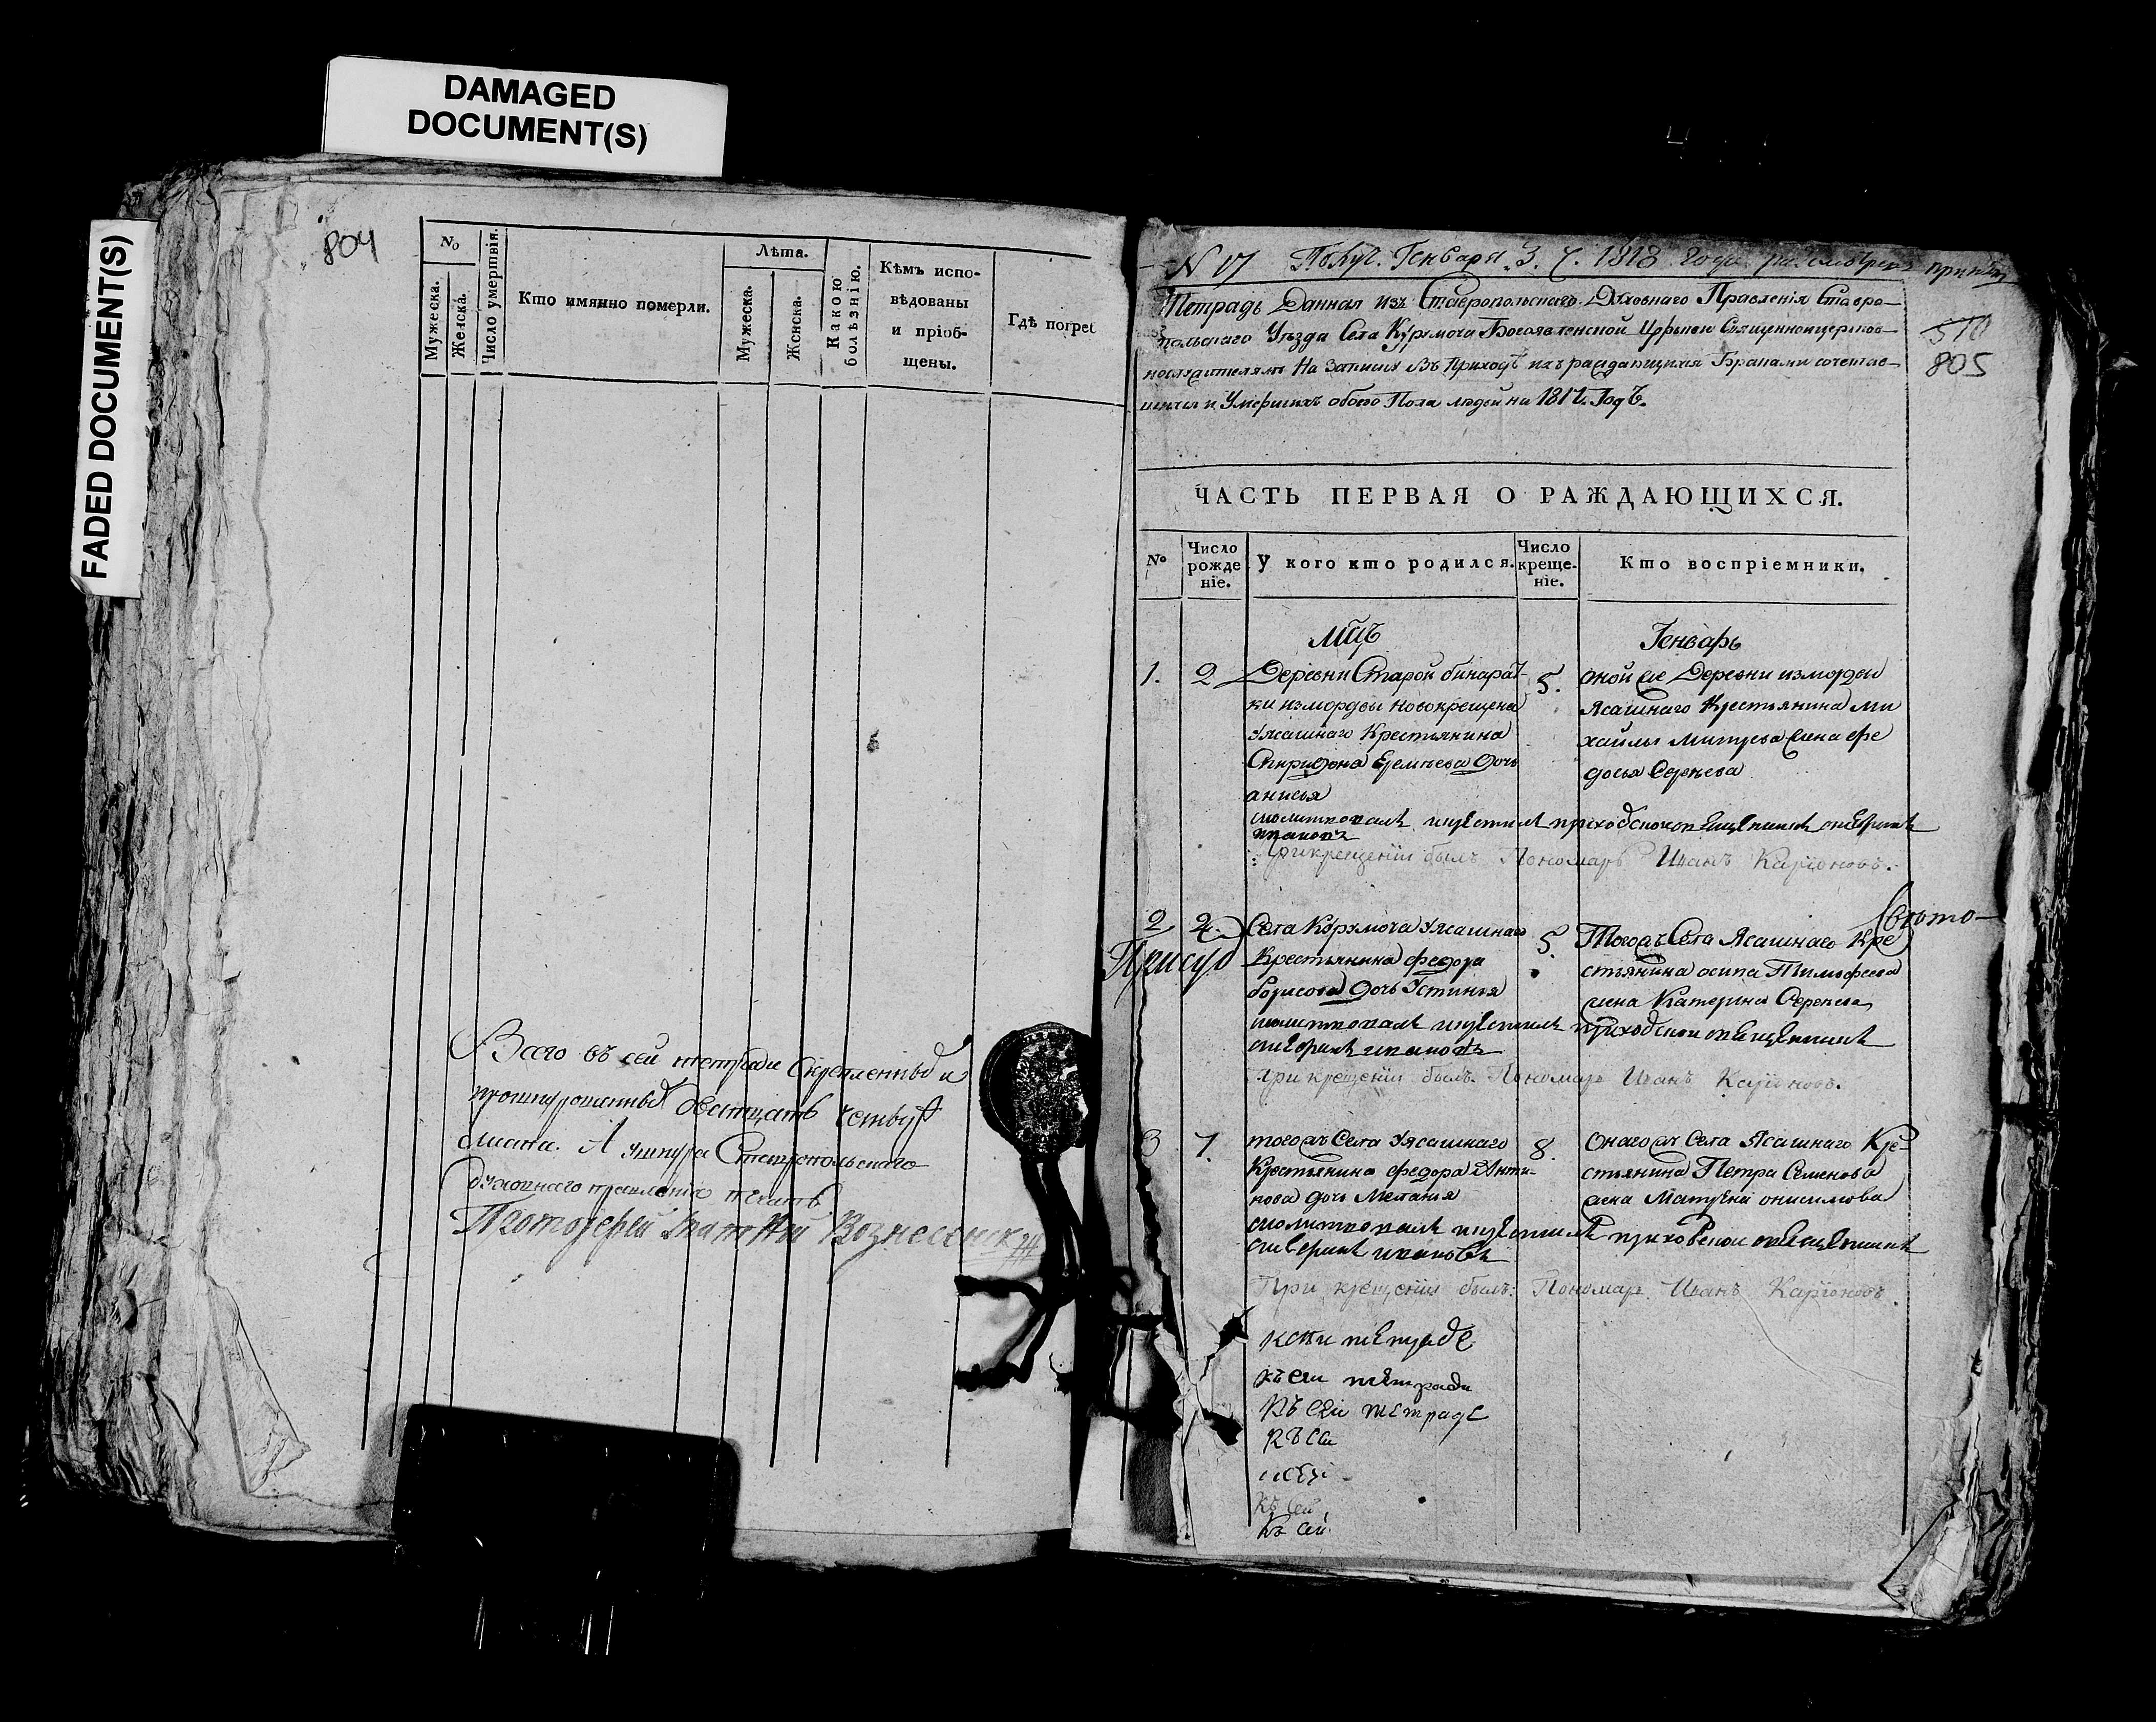 DAMAGED
DOCUMENT(S)
FADED DOCUMENT(S)
804
№
Мужеска.
Женска.
Число умертвія.
Кто имянно померли.
Лѣта.
Мужеска.
Женска.
Какою
болѣзнію.
Кѣмъ испо-
вѣдованы
и пріоб-
щены.
Гдѣ погреб
Всего въ сей тетради скрепленныхъ и
прошнурованныхъ дватцать четыре
листа. А у шнура Ставропольскаго
духовнаго правления печать
Протоіерей Вознесенскій
N 17 Генваря 3. 1818 года
Тетрадь Данная изъ Ставропольскаго Духовнаго Правленія Ставро-
польскаго Уѣзда Села Курумоча Богоявленской Церкви Священноцерков-
нослужителямъ На записку въ приходѣ ихъ раждающихся Браками сочетав-
шихся и Умершихъ обоего Пола людей на 1817. Годъ.
510
805
ЧАСТЬ ПЕРВАЯ О РАЖДАЮЩИХСЯ.
№
Число
рожде
ніе.
У кого кто родился.
Число
креще-
ніе.
Кто воспріемники.
мцъ
Генварь
1. 2
Деревни Старой бинарат-
ки измордвы новокрещена
Уясашнаго Крестьянина
Спиридона Еремеева дочь
анисья
5.
оной же Деревни измордвы
Ясашнаго Крестьянина ми
хайлы жена фе
досья Сергеева
молитвовалъ икрестилъ приходской священникъ
ивановъ
При крещении былъ Пономарь Иванъ Каріоновъ.
2 2.
Села Курумоча Уясашнаго
Крестьянина федора
борисова дочь Устинья
5.
Тогожъ Села Ясашнаго Кре
стьянина осипа Тимофеева
жена Катерина Сергеева
молитвовалъ икрестилъ приходской священникъ
ивановъ
При крещении былъ. Пономарь Иванъ Каріоновъ.
3 7.
тогожъ Села Уясашнаго
Крестьянина федора Анти-
пова дочь Меланья
8.
Онагожъ Села Ясашнаго Кре-
стьянина Петра Семенова
жена Матрена онисимова
молитвовалъ икрестилъ приходской священникъ
ивановъ
При крещении былъ: Пономарь Иванъ Каріоновъ.
къ сеи тетради
къ сеи тетраде
къ сеи
къ сей
къ сей